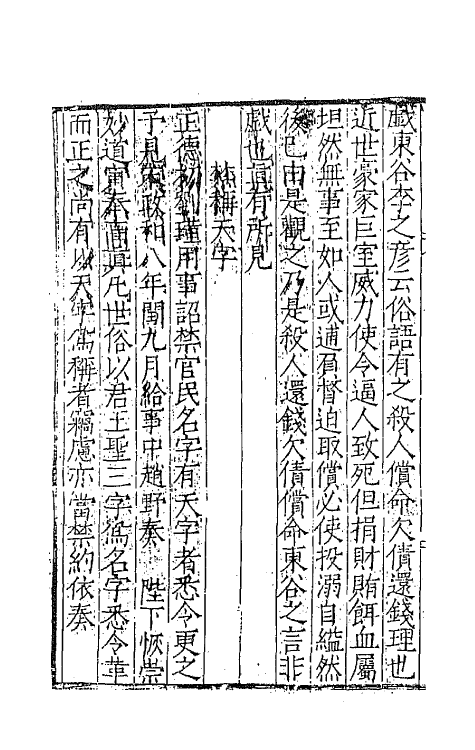 戲東谷李之彦云俗語有之殺人償命欠債還錢理也
近世豪家巨室威力使令逼人致死但捐財賄餌血屬
坦然無事至如人或逋負督迫取償必使投溺自縊然
後已由是觀之乃是殺人還錢欠債償命東谷之言非
戲也真有所見
禁稱天字
正德初劉瑾用事詔禁官民名字有天字者悉令更之
予見宋政和八年閏九月給事中趙野奏 陛下恢崇
妙道寅奉高真凡世俗以君王聖三字為名字悉令革
而正之尚有以天字為稱者竊慮亦當禁約依奏